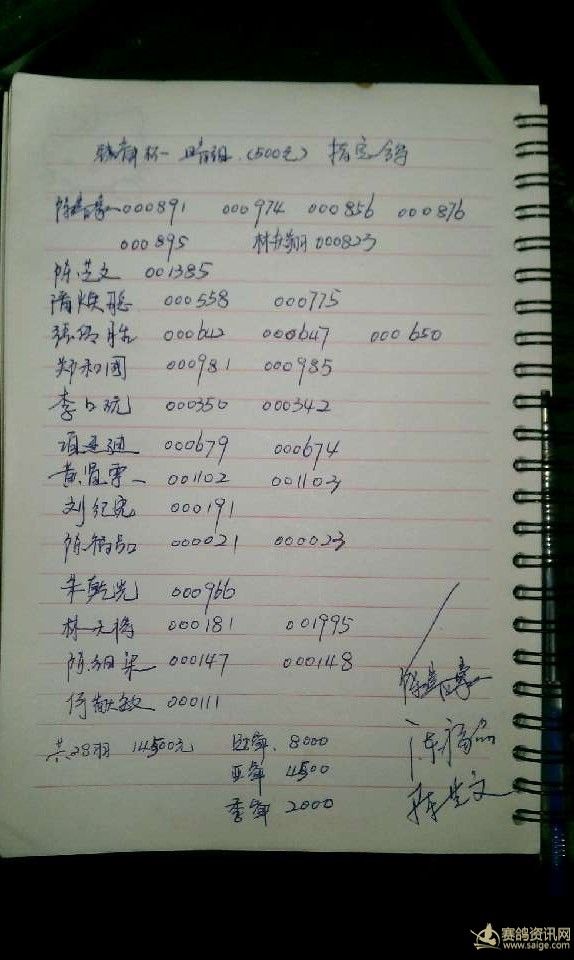 杯一 组 (500元) 指定鸽
陈 000891 000974 000856 000876
000895 林 翔 000823
陈芝文 001385
隋焕聪 000558 000775
张 胜 000642 000647 000650
郑和国 000981 000985
李 000350 000342
项 迪 000679 000674
黄贤 001102 001103
刘纪 000191
陈福品 000021 000023
朱乾光 000966
林 000181 001995
陈 000147 000148
何献敏 000111
陈
共28羽 14500元 冠军. 8000
陈福品
亚军 4500
陈芝文
季军 2000
赛鸽资讯网
www.saige.com